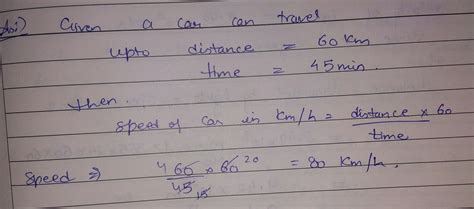 Ansi) Given a car can travel
upto distance = 60 Km
time = 45 min.
then.
speed of car in Km/h = distance × 60
time
Speed ⇒ 4 60 × 60 20 = 80 Km/h.
45 15